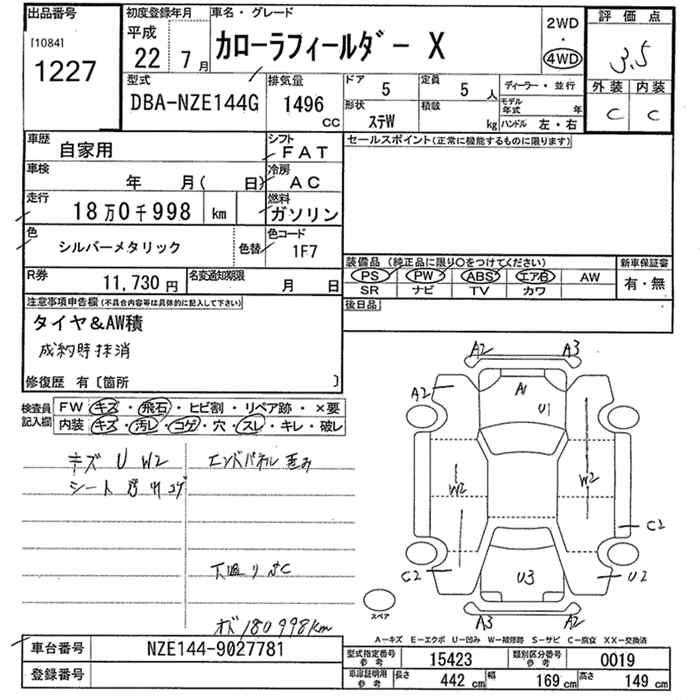 出品番号
[1084]
1227
初度登録年月
平成
22年 7月
車名・グレード
カローラフィールダー X
2WD
・
4WD
評価点
3.5
外装 内装
C C
型式
DBA-NZE144G
排気量
1496
CC
ドア 5
定員 5 人
形状 ステW
積載 kg
ディーラー・並行
モデル年式 年
ハンドル 左・右
車歴
自家用
シフト
FAT
車検
年 月( 日)
冷房
AC
走行
18万0千998 km
燃料
ガソリン
色
シルバーメタリック
色替
色コード
1F7
R券
11,730円
名変通知期限
月 日
セールスポイント(正常に機能するものに限ります)
装備品 (純正品に限り○をつけてください)
PS PW ABS エアB AW
SR ナビ TV カワ
新車保証書
有・無
後日品
注意事項申告欄(不具合内容等は具体的に記入して下さい)
タイヤ&AW積
成約時抹消
修復歴 有[箇所 ]
検査員
記入欄
FW キズ・飛石・ヒビ割・リペア跡・×要
内装 キズ・汚レ・コゲ・穴・スレ・キレ・破レ
キズ U W2
エンドパネル歪み
シート
下廻りSC
オド180998km
A2 A3
A2
A1
U1
W2
W2
C2
C2
U3
U2
A3 A2
スペア
A-キズ E-エクボ U-凹み W-補修跡 S-サビ C-腐食 XX-交換済
車台番号
NZE144-9027781
登録番号
型式指定番号
参考
15423
類別区分番号
参考
0019
車庫証明用
参考
長さ 442 cm
幅 169 cm
高さ 149 cm